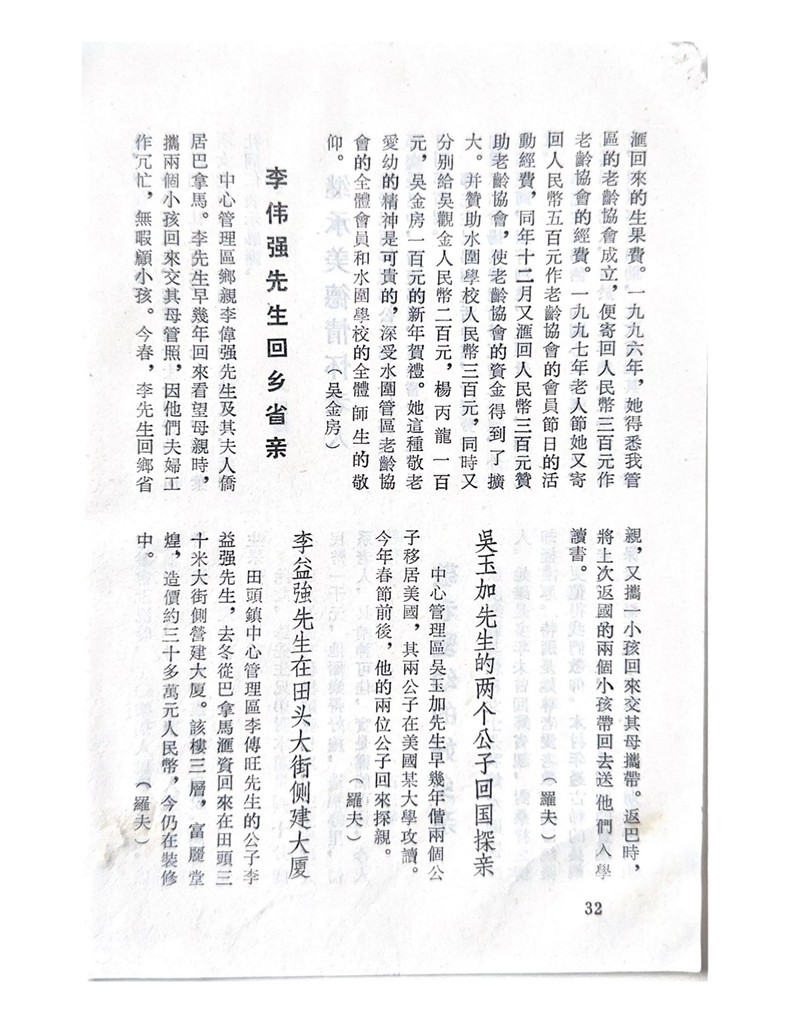 滙回來的生果費。一九九六年，她得悉我管
區的老齡協會成立，便寄回人民幣三百元作
老齡協會的經費。一九九七年老人節她又寄
回人民幣五百元作老齡協會的會員節日的活
動經費，同年十二月又滙回人民幣三百元贊
助老齡協會，使老齡協會的資金得到了擴
大。并贊助水圍學校人民幣三百元，同時又
分别給吳觀金人民幣二百元，楊丙龍一百
元，吳金房一百元的新年賀禮。她這種敬老
愛幼的精神是可貴的，深受水圍管區老齡協
會的全體會員和水圍學校的全體師生的敬
仰。（吳金房）
李伟强先生回乡省亲
中心管理區鄉親李偉强先生及其夫人僑
居巴拿馬。李先生早幾年回來看望母親時，
攜兩個小孩回來交其母管照，因他們夫婦工
作冗忙，無暇顧小孩。今春，李先生回鄉省
親，又攜一小孩回來交其母攜帶。返巴時，
將上次返國的兩個小孩帶回去送他們入學
讀書。（羅夫）
吳玉加先生的两个公子回国探亲
中心管理區吳玉加先生早幾年偕兩個公
子移居美國，其兩公子在美國某大學攻讀。
今年春節前後，他的兩位公子回來探親。
（羅夫）
李益強先生在田头大街侧建大厦
田頭鎮中心管理區李傳旺先生的公子李
益强先生，去冬從巴拿馬滙資回來在田頭三
十米大街側營建大廈。該樓三層，富麗堂
煌，造價約三十多萬元人民幣，今仍在裝修
中。（羅夫）
32